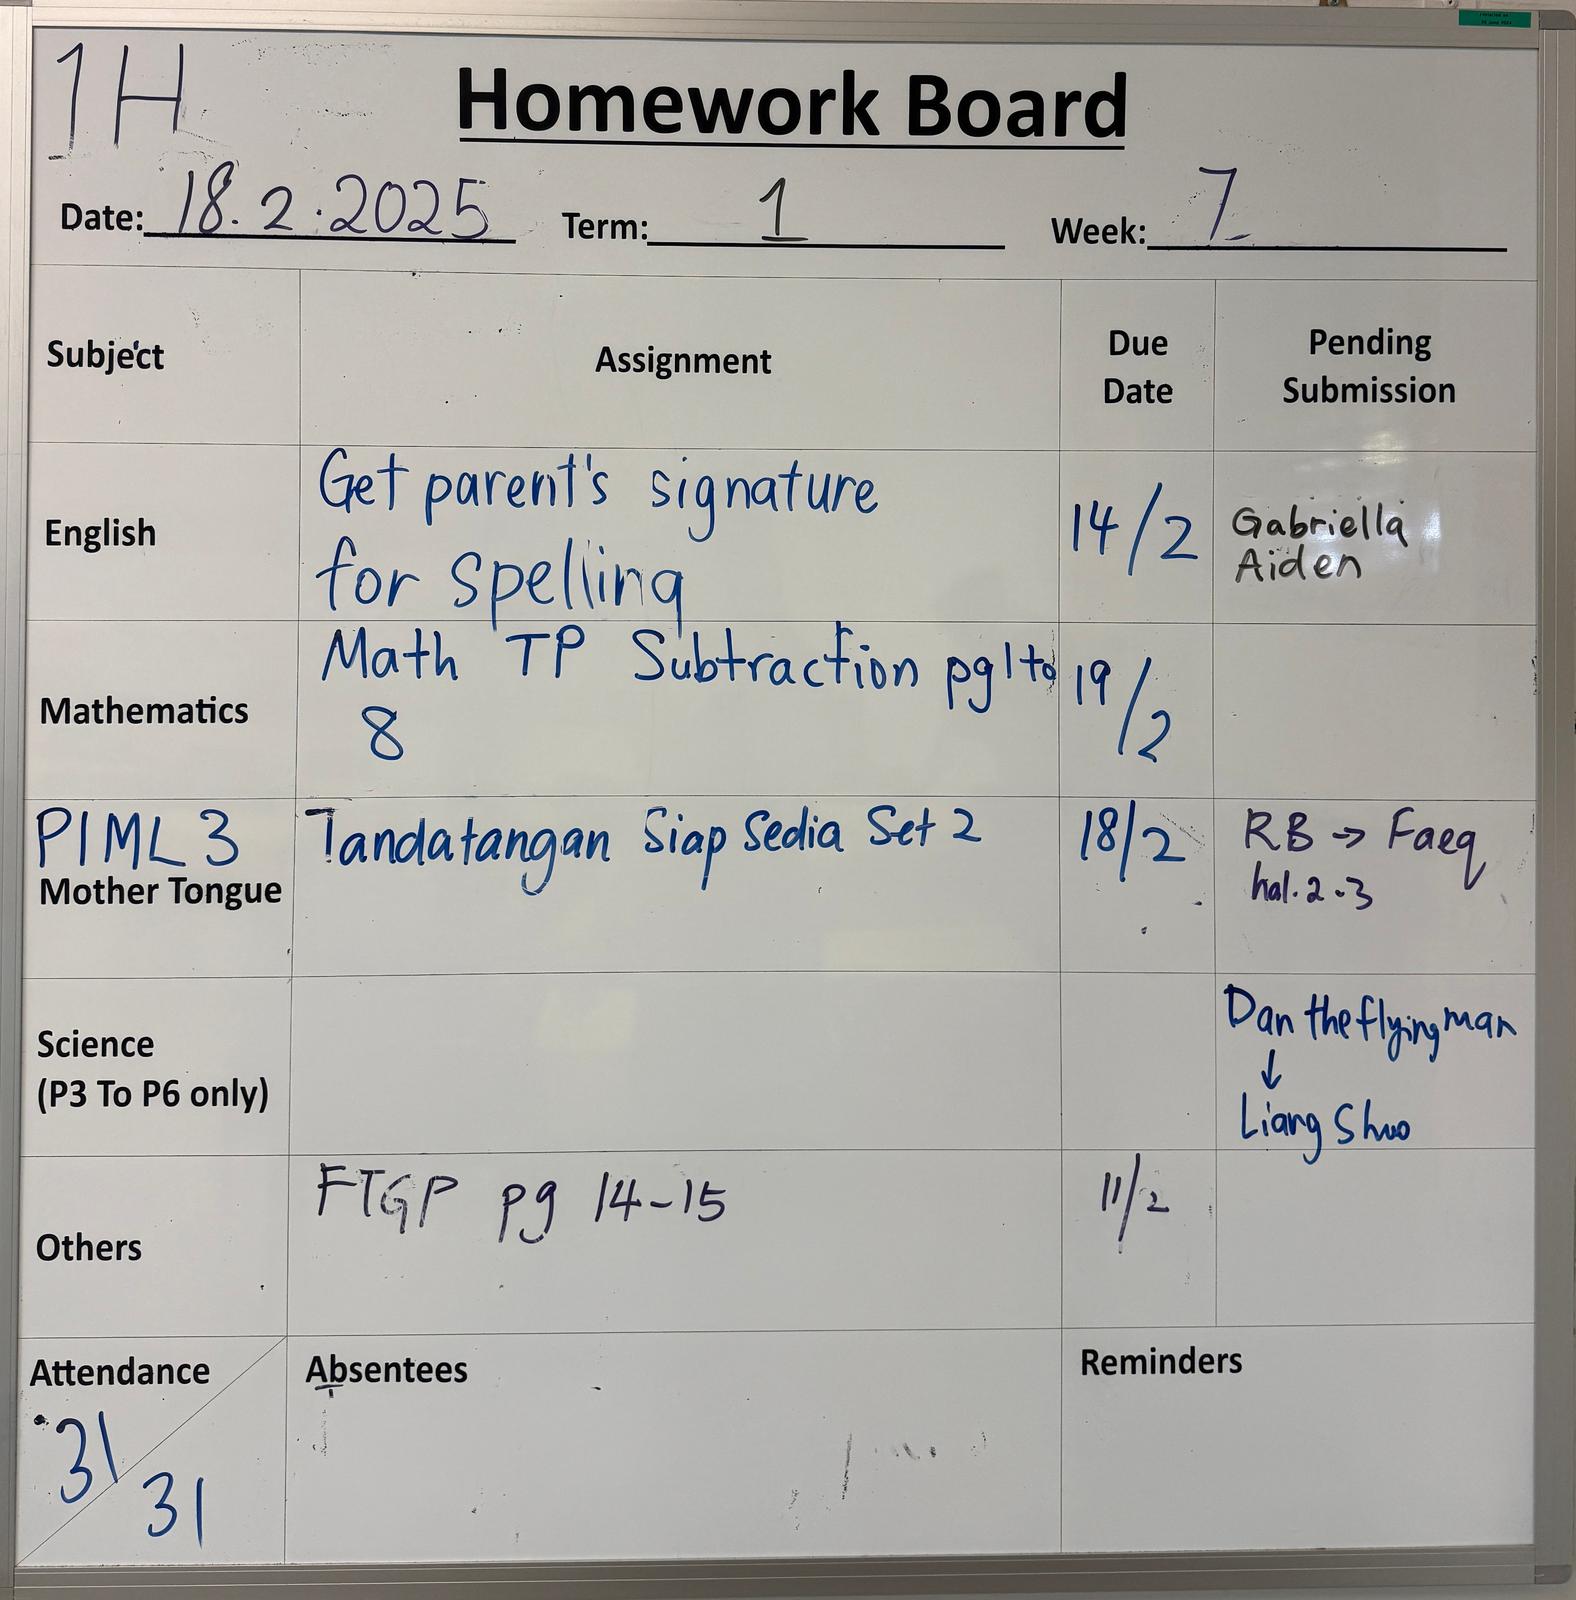 1H
Homework Board
Date: 18.2.2025 Term: 1 Week: 7
Subject Assignment Due Date Pending Submission
English
Get parent's signature
for spelling
14/2
Gabriella
Aiden
Mathematics
Math TP Subtraction pg 1 to
8
19/2
P1ML3
Mother Tongue
Tandatangan Siap Sedia Set 2
18/2
RB → Faeq
hal. 2-3
Science
(P3 To P6 only)
Dan the flying man
↓
Liang Shuo
Others
FTGP pg 14-15
11/2
Attendance
31
31
Absentees
Reminders